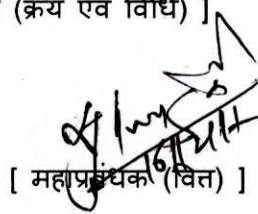 (क्रय एवं विधि) ]
[ महाप्रबंधक (वित्त) ]